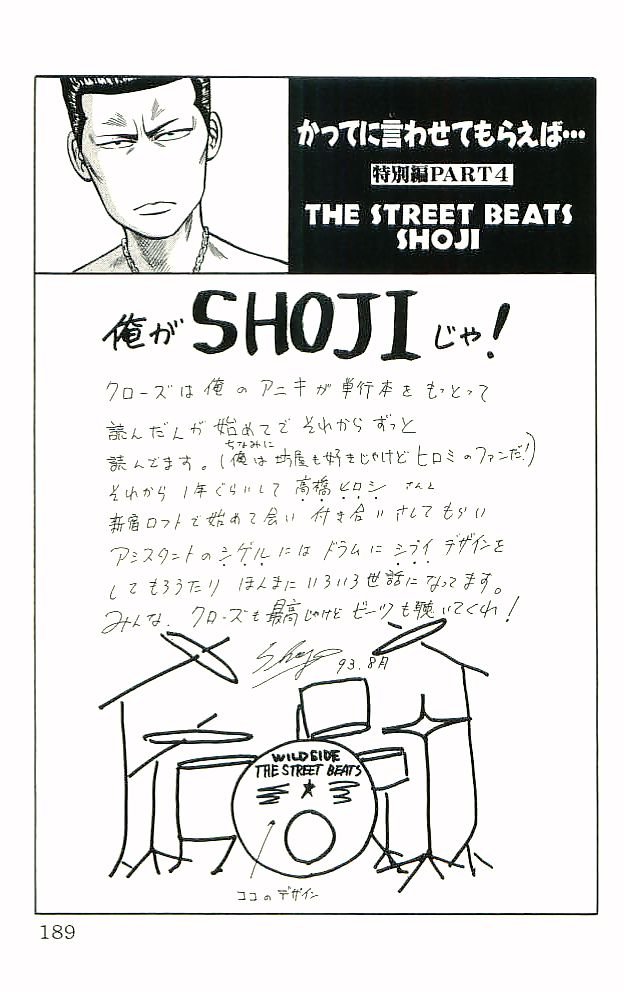 かってに言わせてもらえば…
特別編PART4
THE STREET BEATS
SHOJI
俺が SHOJI じゃ!
クローズは俺のアニキが単行本をもっとって
読んだんが始めてで それから ずっと
ちなみに
読んでます。(俺は坊屋も好きじゃけど ヒロミのファンだ!)
それから 1年ぐらいして 高橋ヒロシ さんと
新宿ロフトで始めて会い 付き合いさしてもらい
アシスタントのシゲルにはドラムにシブイデザインを
してもろうたり ほんまにいろいろ世話になってます。
みんな、クローズも最高じゃけど ビーツも聴いてくれ!
Shoji 93.8月
WILDSIDE
THE STREET BEATS
ココのデザイン
189